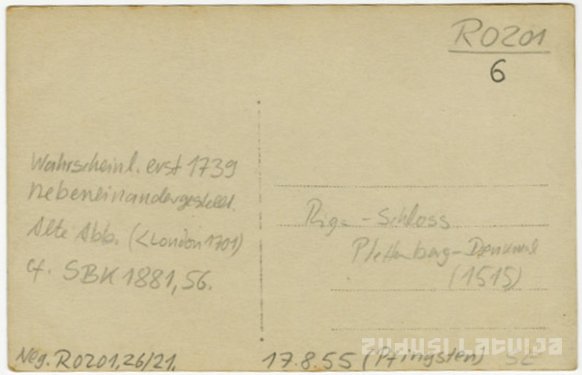 R0201
6
Wahrscheinl. erst 1739
nebeneinandergestellt.
Alte Abb. (<London 1701)
cf. SBK 1881,56.
Riga-Schloss
Plettenberg-Denkmal
(1515)
zudusilatvija
Neg. R0201,26/21.
17.8.55 (Pfingsten) SE